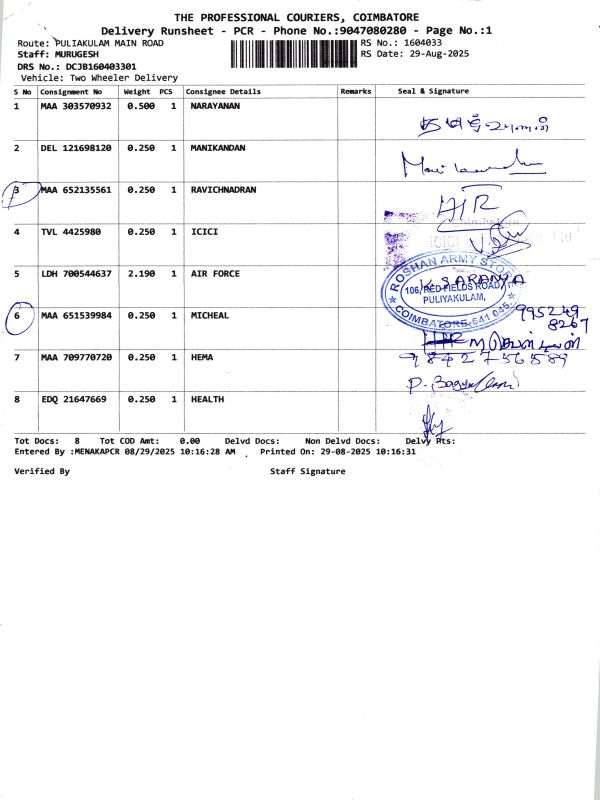 THE PROFESSIONAL COURIERS, COIMBATORE
Delivery Runsheet - PCR - Phone No.:9047080280 - Page No.:1
Route: PULIAKULAM MAIN ROAD
RS No.: 1604033
Staff: MURUGESH
RS Date: 29-Aug-2025
DRS No.: DCJB160403301
Vehicle: Two Wheeler Delivery
S No Consignment No Weight PCS Consignee Details Remarks Seal & Signature
1 MAA 303570932 0.500 1 NARAYANAN
2 DEL 121698120 0.250 1 MANIKANDAN
3 MAA 652135561 0.250 1 RAVICHNADRAN
4 TVL 4425980 0.250 1 ICICI
5 LDH 700544637 2.190 1 AIR FORCE
ROSHAN ARMY STORE
K. SARANYA
106, RED FIELDS ROAD,
PULIYAKULAM,
COIMBATORE-641 045.
6 MAA 651539984 0.250 1 MICHEAL
995249
8267
7 MAA 709770720 0.250 1 HEMA
9842756589
8 EDQ 21647669 0.250 1 HEALTH
Tot Docs: 8 Tot COD Amt: 0.00 Delvd Docs: Non Delvd Docs: Delvy Pts:
Entered By :MENAKAPCR 08/29/2025 10:16:28 AM Printed On: 29-08-2025 10:16:31
Verified By Staff Signature